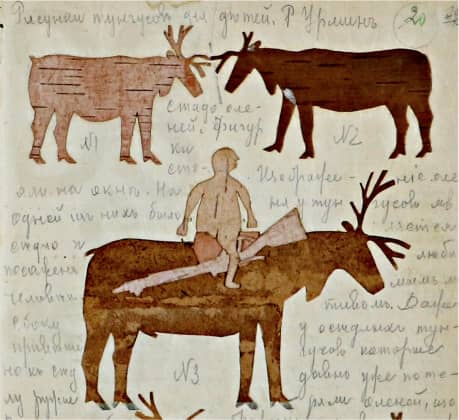 Рисунки тунгусов для дѣтей. Р Урминъ
20
N1
стадо оле-
ней. Фигур
ки
сто-
N2
яли на окнѣ. На
одной из них было
седло и
посажена
сбоку
привяза
но къ сед
лу ружье
N3
Изображе- ніе оле
ня у тун гусовъ яв
ляется
люби
мымъ м
тивомъ. Даже
у осѣдлых тун
гусовъ которые
давно уже поте
ряли оленей, изо